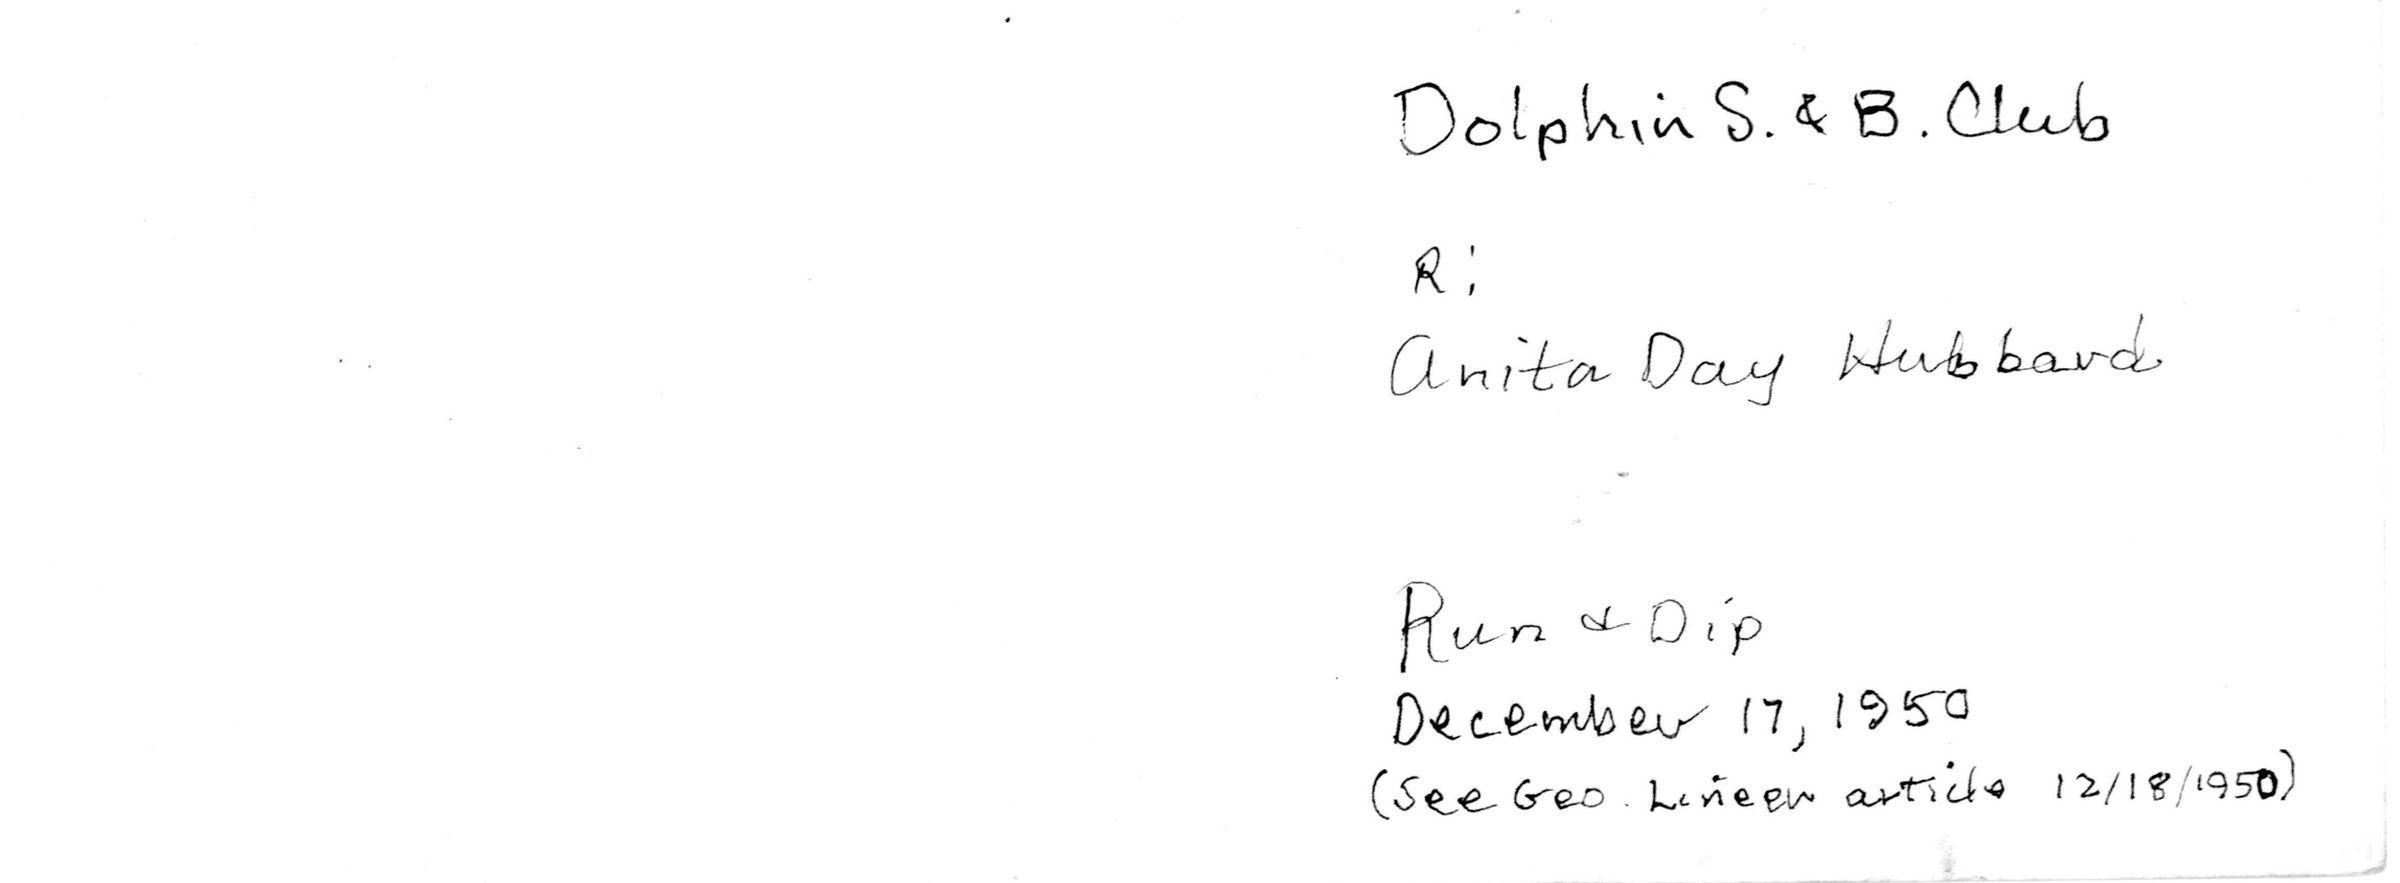 Dolphin S. & B. Club
R:
Anita Day Hubbard
Run & Dip
December 17, 1950
(See Geo. article 12/18/1950)